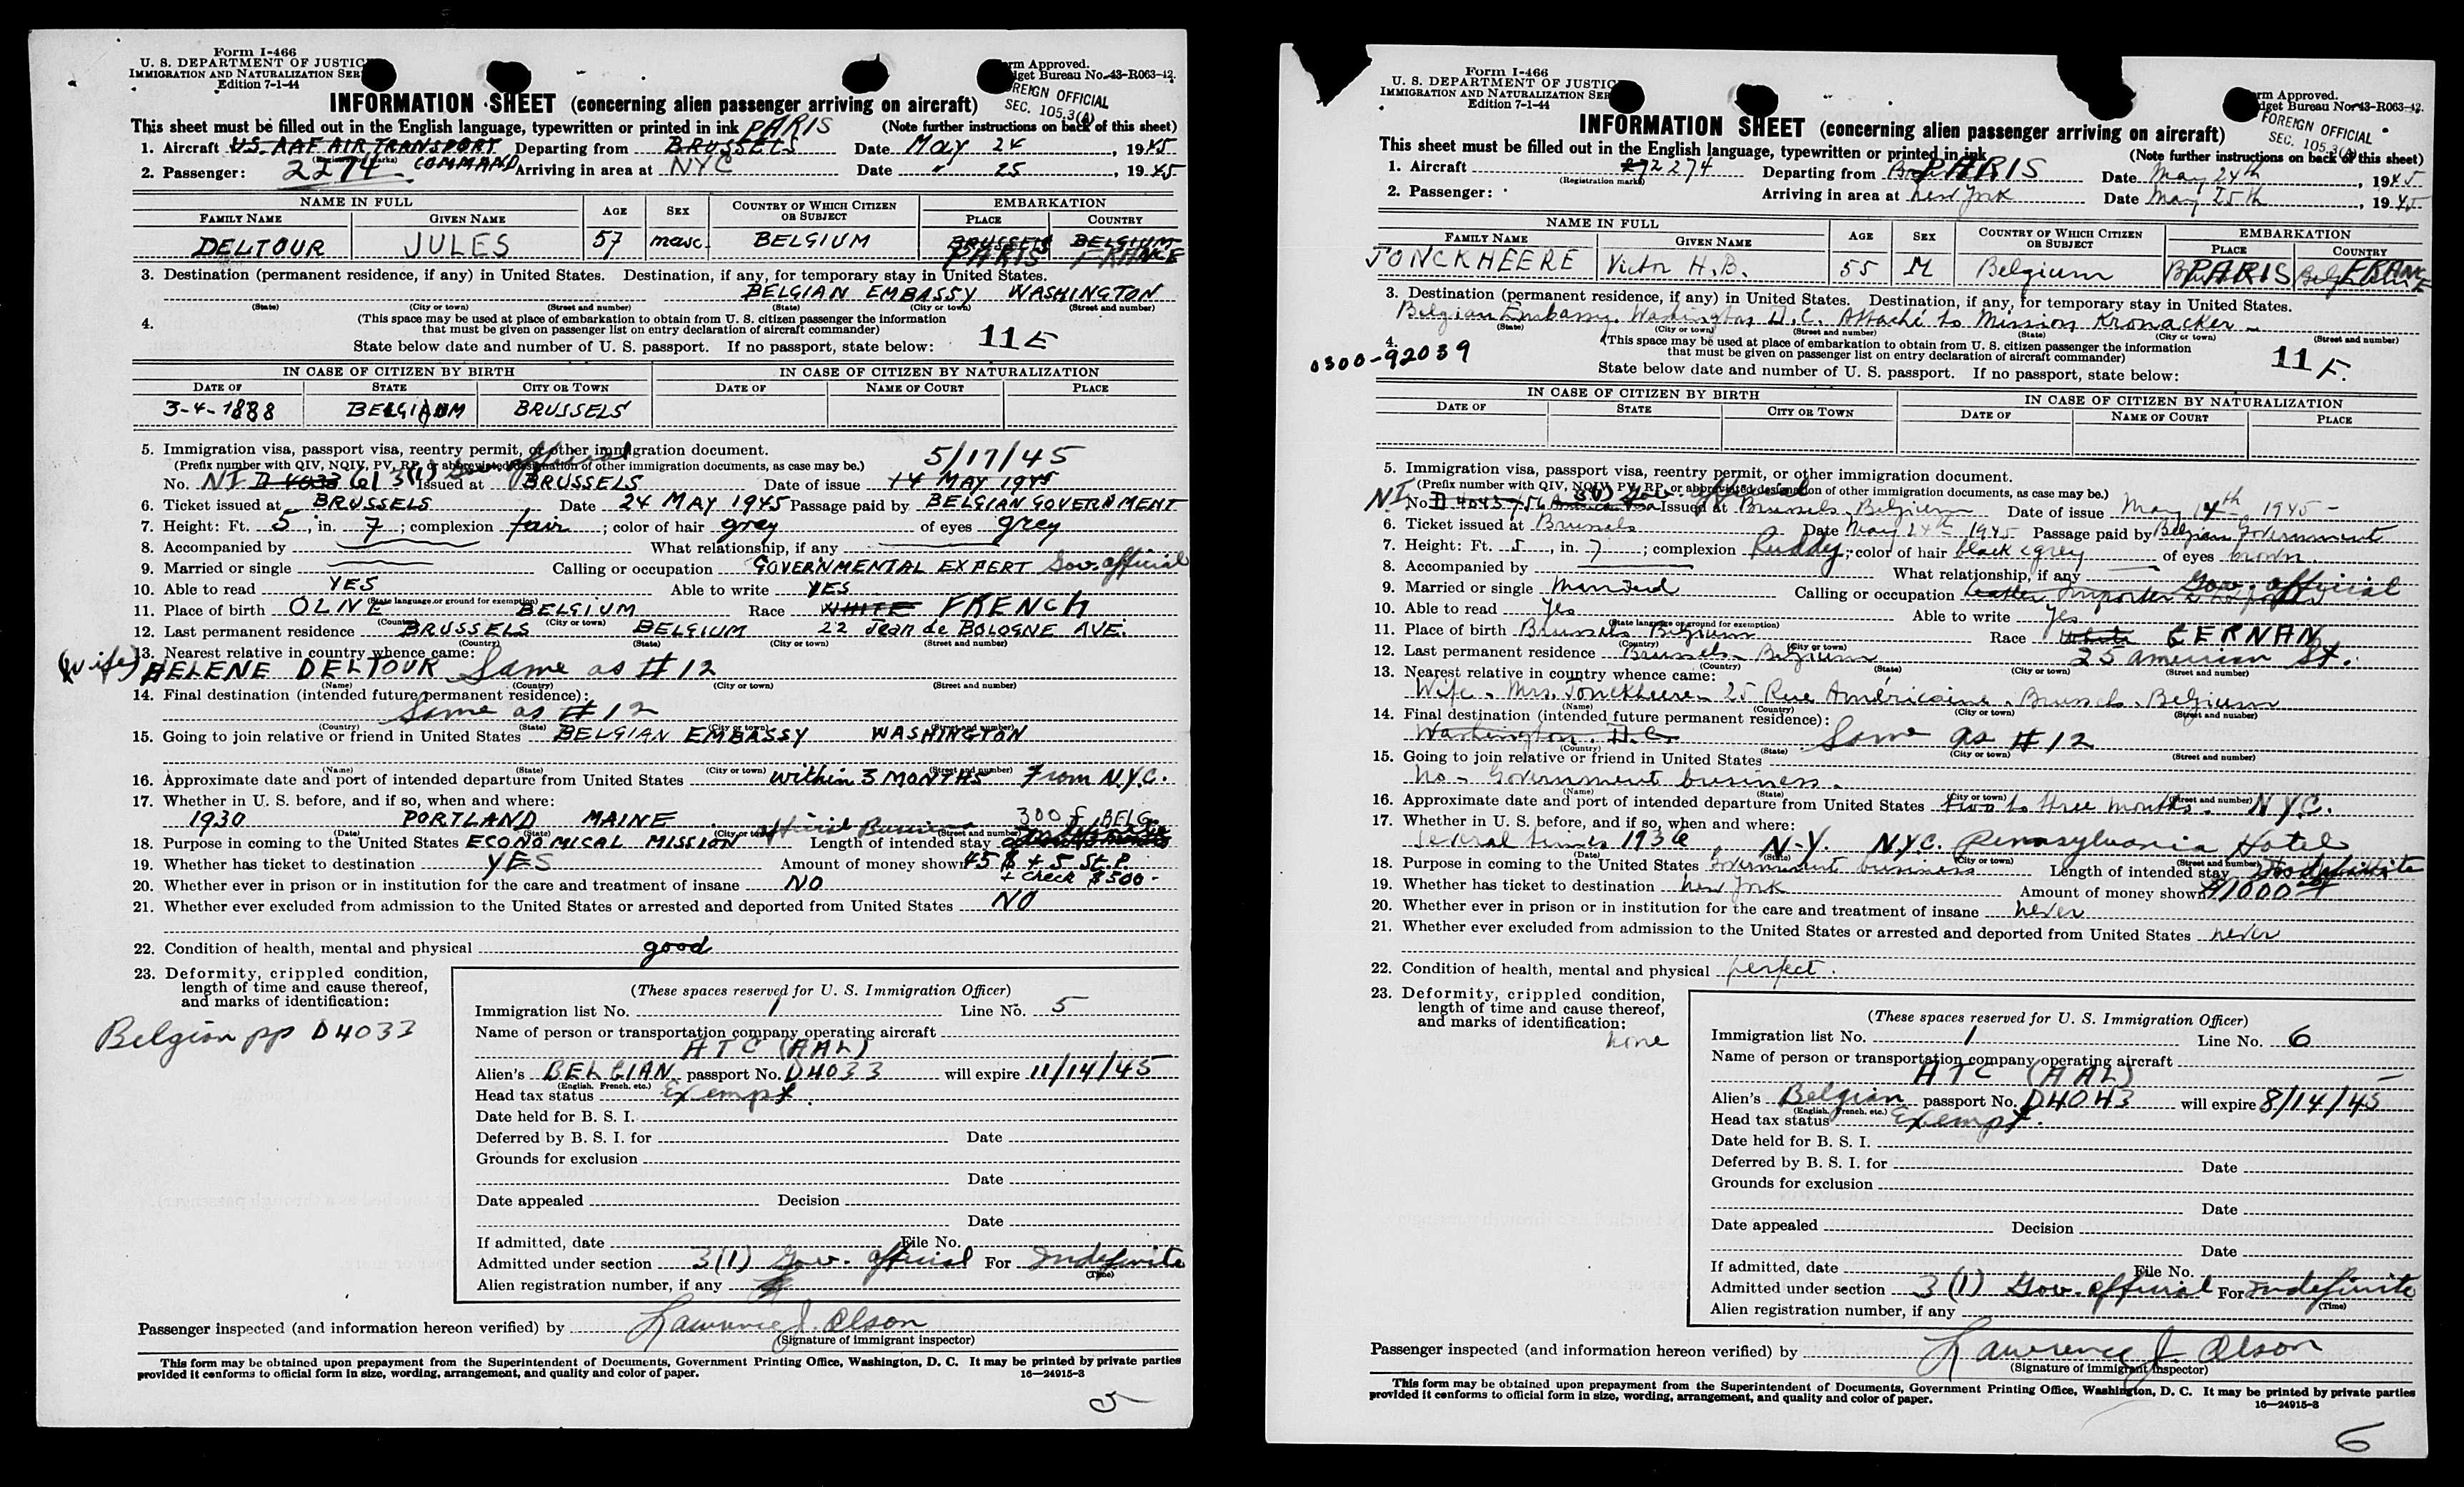 Form I-466
U. S. DEPARTMENT OF JUSTIC
IMMIGRATION AND NATURALIZATION SER
Edition 7-1-44
rm Approved.
get Bureau No. 43-R063-12.
REIGN OFFICIAL
SEC. 105.3(A)
INFORMATION SHEET (concerning alien passenger arriving on aircraft)
This sheet must be filled out in the English language, typewritten or printed in ink PARIS (Note further instructions on back of this sheet)
1. Aircraft US AAF AIR TRANSPORT COMMAND Departing from BRUSSELS Date May 24, 1945
(Registration marks)
2. Passenger: 2274 Arriving in area at NYC Date " 25, 1945
NAME IN FULL AGE SEX COUNTRY OF WHICH CITIZEN OR SUBJECT EMBARKATION
FAMILY NAME GIVEN NAME PLACE COUNTRY
DELTOUR JULES 57 masc. BELGIUM BRUSSELS PARIS BELGIUM FRANCE
3. Destination (permanent residence, if any) in United States. Destination, if any, for temporary stay in United States.
BELGIAN EMBASSY WASHINGTON
(State) (City or town) (Street and number) (State) (City or town) (Street and number)
4. (This space may be used at place of embarkation to obtain from U. S. citizen passenger the information
that must be given on passenger list on entry declaration of aircraft commander)
State below date and number of U. S. passport. If no passport, state below: 11 F
IN CASE OF CITIZEN BY BIRTH IN CASE OF CITIZEN BY NATURALIZATION
DATE OF STATE CITY OR TOWN DATE OF NAME OF COURT PLACE
3-4-1888 BELGIUM BRUSSELS
5. Immigration visa, passport visa, reentry permit, or other immigration document.
(Prefix number with QIV, NQIV, PV, RP, or abbreviated designation of other immigration documents, as case may be.) 5/17/45
No. NI D 4033 61 3(1) Gov official Issued at BRUSSELS Date of issue 14 MAY 1945
6. Ticket issued at BRUSSELS Date 24 MAY 1945 Passage paid by BELGIAN GOVERNMENT
7. Height: Ft. 5, in. 7; complexion fair; color of hair grey of eyes grey
8. Accompanied by What relationship, if any
9. Married or single Calling or occupation GOVERNMENTAL EXPERT Gov. official
10. Able to read YES Able to write YES
(State language or ground for exemption)
11. Place of birth OLNE BELGIUM Race WHITE FRENCH
(Country) (City or town)
12. Last permanent residence BRUSSELS BELGIUM 22 Jean de BOLOGNE AVE.
(Country) (State) (City or town) (Street and number)
13. Nearest relative in country whence came:
(wife) HELENE DELTOUR Same as #12
(Name) (Country) (City or town) (Street and number)
14. Final destination (intended future permanent residence):
Same as #12
(Country) (State) (City or town) (Street and number)
15. Going to join relative or friend in United States BELGIAN EMBASSY WASHINGTON
(Name) (State) (City or town) (Street and number)
16. Approximate date and port of intended departure from United States within 3 MONTHS From N.Y.C.
17. Whether in U. S. before, and if so, when and where:
1930 PORTLAND MAINE 300 F BELG
(Date) (State) (City or town) (Street and number)
18. Purpose in coming to the United States ECONOMICAL MISSION official Business Length of intended stay
19. Whether has ticket to destination YES Amount of money shown 45 $ + 5 St. P.
+ check $500-
20. Whether ever in prison or in institution for the care and treatment of insane NO
21. Whether ever excluded from admission to the United States or arrested and deported from United States NO
22. Condition of health, mental and physical good
23. Deformity, crippled condition,
length of time and cause thereof,
and marks of identification:
Belgian pp D4033
(These spaces reserved for U. S. Immigration Officer)
Immigration list No. 1 Line No. 5
Name of person or transportation company operating aircraft
ATC (AAL)
Alien's BELGIAN passport No. D4033 will expire 11/14/45
(English, French, etc.)
Head tax status Exempt.
Date held for B. S. I.
Deferred by B. S. I. for Date
Grounds for exclusion
Date
Date appealed Decision
Date
If admitted, date File No.
Admitted under section 3(1) Gov. official For Indefinite
(Time)
Alien registration number, if any
Passenger inspected (and information hereon verified) by Lawrence J. Olson
(Signature of immigrant inspector)
This form may be obtained upon prepayment from the Superintendent of Documents, Government Printing Office, Washington, D. C. It may be printed by private parties
provided it conforms to official form in size, wording, arrangement, and quality and color of paper. 16—24915-3
5
Form I-466
U. S. DEPARTMENT OF JUSTIC
IMMIGRATION AND NATURALIZATION SER
Edition 7-1-44
rm Approved.
dget Bureau No. 43-R063-12.
FOREIGN OFFICIAL
SEC. 105.3(A)
INFORMATION SHEET (concerning alien passenger arriving on aircraft)
This sheet must be filled out in the English language, typewritten or printed in ink (Note further instructions on back of this sheet)
1. Aircraft 272274 Departing from PARIS Date May 24th, 1945
(Registration marks)
2. Passenger: Arriving in area at New York Date May 25th, 1945
NAME IN FULL AGE SEX COUNTRY OF WHICH CITIZEN OR SUBJECT EMBARKATION
FAMILY NAME GIVEN NAME PLACE COUNTRY
JONCKHEERE Victor H.B. 55 M Belgium PARIS Belgium FRANCE
3. Destination (permanent residence, if any) in United States. Destination, if any, for temporary stay in United States.
Belgian Embassy. Washington D.C. Attaché to Mission Kronacker
(State) (City or town) (Street and number) (State) (City or town) (Street and number)
4. (This space may be used at place of embarkation to obtain from U. S. citizen passenger the information
that must be given on passenger list on entry declaration of aircraft commander)
0300-92039
State below date and number of U. S. passport. If no passport, state below: 11 F.
IN CASE OF CITIZEN BY BIRTH IN CASE OF CITIZEN BY NATURALIZATION
DATE OF STATE CITY OR TOWN DATE OF NAME OF COURT PLACE
5. Immigration visa, passport visa, reentry permit, or other immigration document.
(Prefix number with QIV, NQIV, PV, RP, or abbreviated designation of other immigration documents, as case may be.)
NI No. D 4043/56 3(1) Gov. official Issued at Brussels Belgium Date of issue May 14th 1945-
6. Ticket issued at Brussels Date May 24th 1945 Passage paid by Belgian Government
7. Height: Ft. 5, in. 7; complexion Ruddy; color of hair black & grey of eyes brown
8. Accompanied by What relationship, if any
9. Married or single Married Calling or occupation Leather Importer Gov. official
10. Able to read Yes Able to write Yes
(State language or ground for exemption)
11. Place of birth Brussels Belgium Race White GERMAN
(Country) (City or town)
12. Last permanent residence Brussels Belgium 25 american St.
(Country) (State) (City or town) (Street and number)
13. Nearest relative in country whence came:
Wife. Mrs. Jonckheere - 25 Rue Américaine. Brussels. Belgium
(Name) (Country) (City or town) (Street and number)
14. Final destination (intended future permanent residence):
Washington. D.C. Same as #12
(Country) (State) (City or town) (Street and number)
15. Going to join relative or friend in United States
No - Government business.
(Name) (State) (City or town) (Street and number)
16. Approximate date and port of intended departure from United States two to three months. N.Y.C.
17. Whether in U. S. before, and if so, when and where:
Several times 1936, N-Y. N.Y.C. Pennsylvania Hotel
(Date) (State) (City or town) (Street and number)
18. Purpose in coming to the United States Government business Length of intended stay Indefinite
19. Whether has ticket to destination New York Amount of money shown $1000
20. Whether ever in prison or in institution for the care and treatment of insane never
21. Whether ever excluded from admission to the United States or arrested and deported from United States never
22. Condition of health, mental and physical perfect.
23. Deformity, crippled condition,
length of time and cause thereof,
and marks of identification:
none
(These spaces reserved for U. S. Immigration Officer)
Immigration list No. 1 Line No. 6
Name of person or transportation company operating aircraft
ATC (AAL)
Alien's Belgian passport No. D4043 will expire 8/14/45
(English, French, etc.)
Head tax status Exempt.
Date held for B. S. I.
Deferred by B. S. I. for Date
Grounds for exclusion
Date
Date appealed Decision
Date
If admitted, date File No.
Admitted under section 3(1) Gov. official For Indefinite
(Time)
Alien registration number, if any
Passenger inspected (and information hereon verified) by Lawrence J. Olson
(Signature of immigrant inspector)
This form may be obtained upon prepayment from the Superintendent of Documents, Government Printing Office, Washington, D. C. It may be printed by private parties
provided it conforms to official form in size, wording, arrangement, and quality and color of paper.
16—24915-3
6